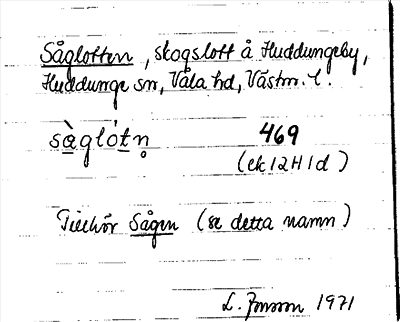 Såglotten, skogslott å Huddungeby,
Huddunge sn, Våla hd, Västm. l.
sàglótn̥ 469
(ek 12H1d)
Tillhör Sågen (se detta namn)
L. Jonsson 1971